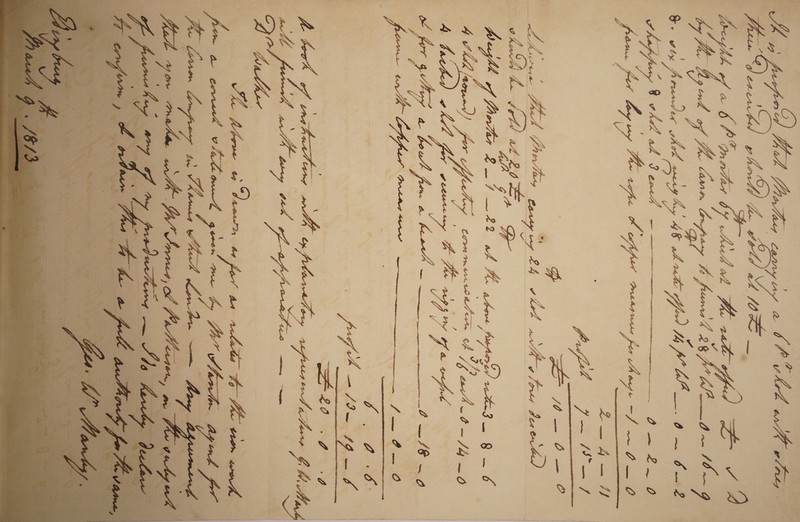 It is proposed that Mortars carrying a 6 pr Shot with stores
then described should be sold at 10 £ —
Weight of a 6 pr mortar 67 which at the rate offered £ s d
by the Agent of the Carron Company to furnish 28 pr lb — 0 — 16 — 9
8. six pounder shot weighing 48 at rate offered pr lb — 0 — 6 — 2
strapping 8 shot at 3 each — 0 — 2 — 0
frame for laying the rope & copper measure for charge — 1 — 0 — 0
2 — 4 — 11
profit 7 — 15 — 1
£ 10 — 0 — 0
that Mortars carrying 24 shot with stores described
should be sold at 20 £
Weight of Mortar 2 — 1 — 22 at the above proposed rate 3 — 8 — 6
4 shot round for effecting communication at 3/6 each — 0 — 14 — 0
4 barbed shot for securing to the rigging of a vessel
& for getting a boat from a beach — 0 — 18 — 0
frame with Copper measure — 1 — 0 — 0
6 . 0 . 6
profit — 13 — 19 — 6
£ 20 . 0 . 0
A book of instructions with explanatory representations G. W. Manby
will furnish with every set of apparatus —
Dr Walker
The above is drawn as far as relates to the iron work
from a correct statement given me by Mr Stanton agent for
the Carron Company in Thames Street London — Any agreement
that you make with Mr Innes, & Patterson, on the subject
of furnishing any of my productions — I do hereby declare
to confirm, & ordain this to be a full authority for the same,
Geo. Wm Manby.
Edinburgh
March 9. 1813